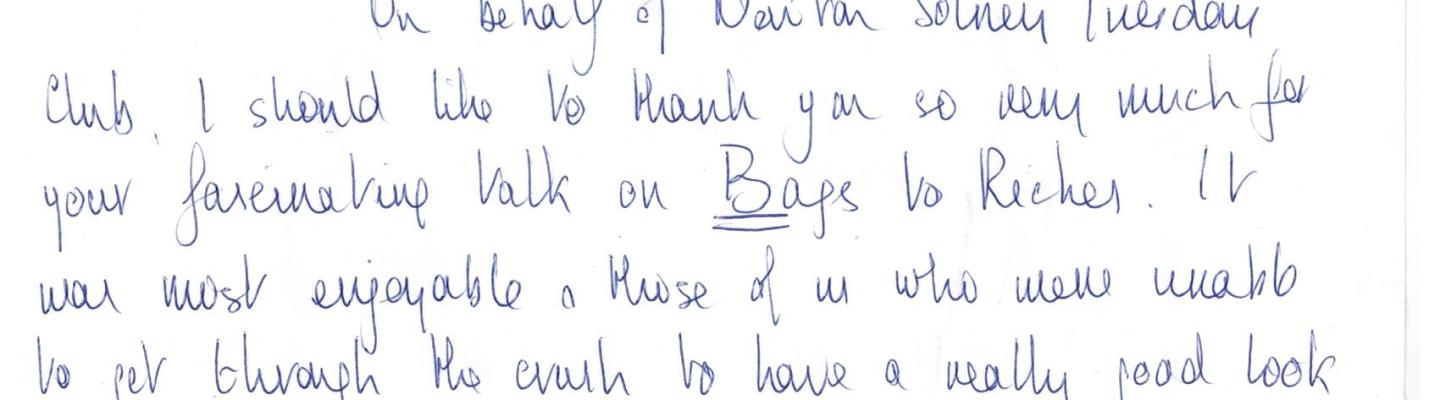 On behalf of Newton Solney Tuesday
Club, I should like to thank you so very much for
your fascinating talk on Bags to Riches. It
was most enjoyable & those of us who were unable
to get through the crush to have a really good look